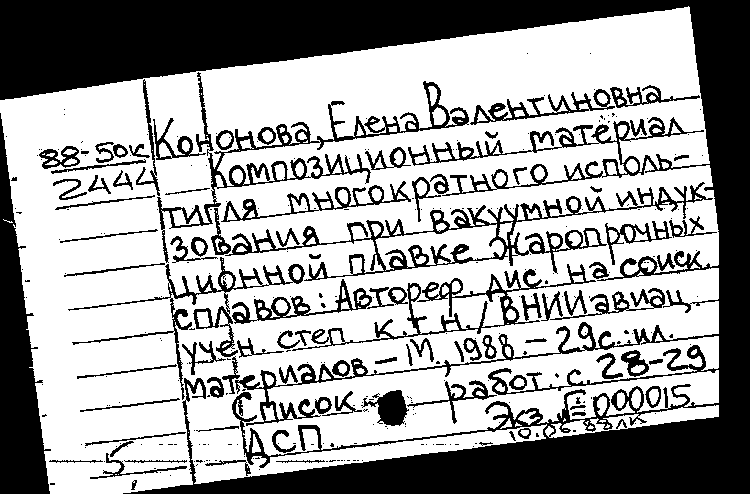 Кононова, Елена Валентиновна.
88-5ок
2444
Композиционный материал
тигля многократного исполь-
зования при вакуумной индук-
ционной плавке жаропрочных
сплавов: Автореф. дис. на соиск.
учен. степ. к.т.н. / ВНИИ авиац.
материалов. – М., 1988. – 29с.: ил.
Список работ.: с. 28-29
ДСП. Экз. 000015.
5